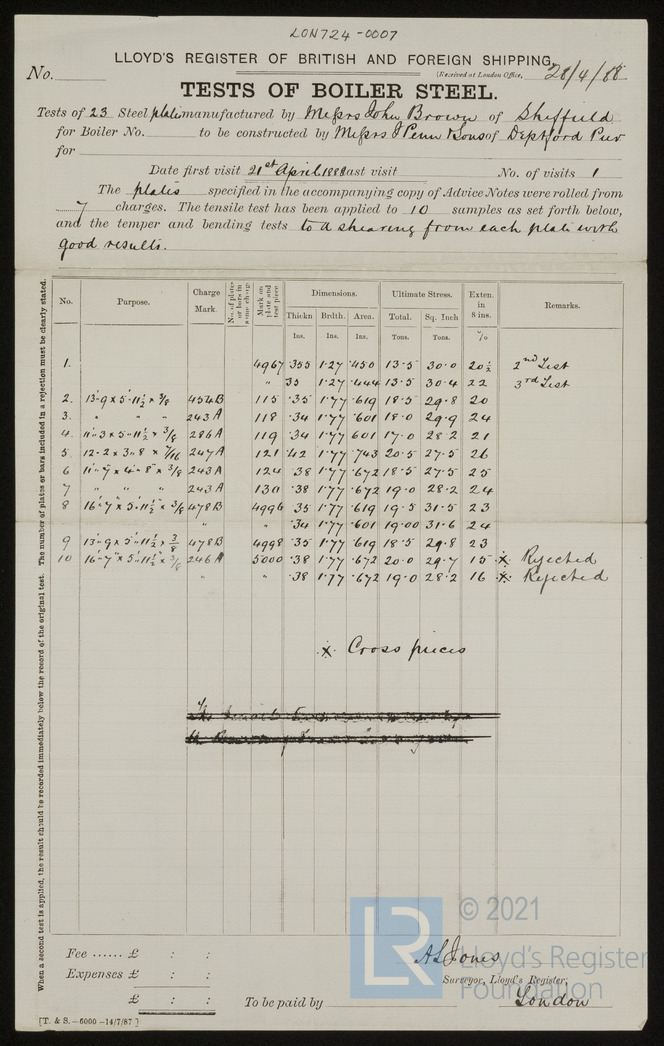 LON724-0007
LLOYD'S REGISTER OF BRITISH AND FOREIGN SHIPPING.
No. (Received at London Office, 28/4/88
TESTS OF BOILER STEEL.
Tests of 23 Steel plates manufactured by Messrs John Brown of Sheffield
for Boiler No. to be constructed by Messrs J Penn & Sons of Deptford Pier
for
Date first visit 21st April 1888 last visit No. of visits 1
The plates specified in the accompanying copy of Advice Notes were rolled from
7 charges. The tensile test has been applied to 10 samples as set forth below,
and the temper and bending tests to a shearing from each plate with
good results.
No. Purpose. Charge Mark. No. of plates or bars in same charge Mark on plate and test piece Dimensions. Ultimate Stress. Exten. in 8 ins. Remarks.
Thickn Brdth. Area. Total. Sq. Inch
Ins. Ins. Ins. Tons. Tons. %
1. 4967 355 1·27 ·450 13·5 30·0 20½ 2nd Test
" 35 1·27 ·444 13·5 30·4 22 3rd Test
2. 13·9 x 5·11½ x 3/8 454B 115 ·35 1·77 ·619 18·5 29·8 20
3. " " " 243A 118 ·34 1·77 ·601 18·0 29·9 24
4. 11·3 x 5·11½ x 3/8 286A 119 ·34 1·77 601 17·0 28·2 21
5. 12·2 x 3·8 x 7/16 247A 121 ·42 1·77 ·743 20·5 27·5 26
6 11·7 x 4·8 x 3/8 243A 124 ·38 1·77 ·672 18·5 27·5 25
7 " " " 243A 130 ·38 1·77 ·672 19·0 28·2 24
8 16·7 x 5·11½ x 3/8 478B 4996 35 1·77 ·619 19·5 31·5 23
" " ·34 1·77 ·601 19·00 31·6 24
9 13·9 x 5·11½ x 3/8 478B 4998 ·35 1·77 ·619 18·5 29·8 23
10 16·7 x 5·11½ x 3/8 246A 5000 ·38 1·77 ·672 20·0 29·7 15 x Rejected
" " ·38 1·77 ·672 19·0 28·2 16 x Rejected
x Cross pieces
When a second test is applied, the result should be recorded immediately below the record of the original test. The number of plates or bars included in a rejection must be clearly stated.
© 2021
Lloyd's Register
Foundation
Fee ...... £ : :
A L Jones
Expenses £ : :
Surveyor, Lloyd's Register,
£ : :
To be paid by London
[T. & S.—6000 -14/7/87]